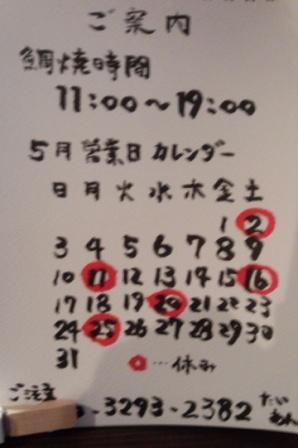 ご案内
鯛焼時間
11:00〜19:00
5月営業日カレンダー
日 月 火 水 木 金 土
1 2
3 4 5 6 7 8 9
10 11 12 13 14 15 16
17 18 19 20 21 22 23
24 25 26 27 28 29 30
31 ○…休み
ご注文
-3293-2382 たい